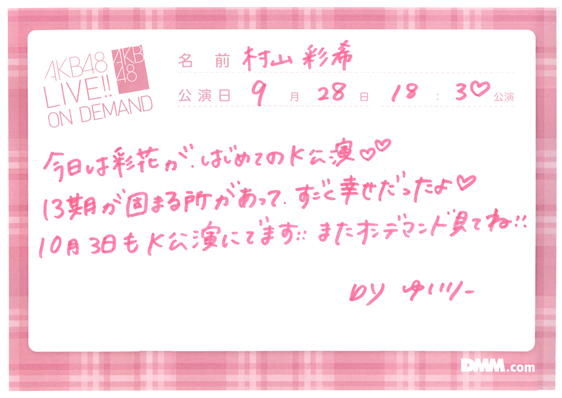 AKB48
LIVE!!
ON DEMAND
AKB
48
名 前 村山彩希
公演日 9 月 28 日 18 : 30♡ 公演
今日は彩花が、はじめてのK公演♡♡
13期が固まる所があって、すごく幸せだったよ♡
10月3日もK公演にでます!! またオンデマンド見てね!!
by ゆいりー
DMM.com